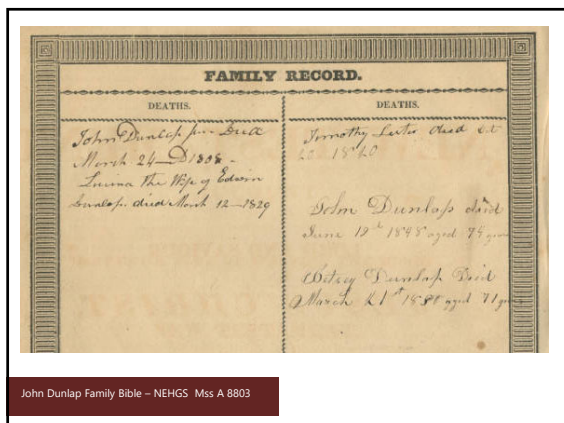 FAMILY RECORD.
DEATHS.
John Dunlap jun Died
March 24 1808
Lucina the Wife of Edwin
Dunlap died March 12 1829
DEATHS.
Timothy Lester died
20 1820
John Dunlap died
June 12th 1848 aged 74 years
Betsey Dunlap Died
March aged 71 years
John Dunlap Family Bible – NEHGS Mss A 8803